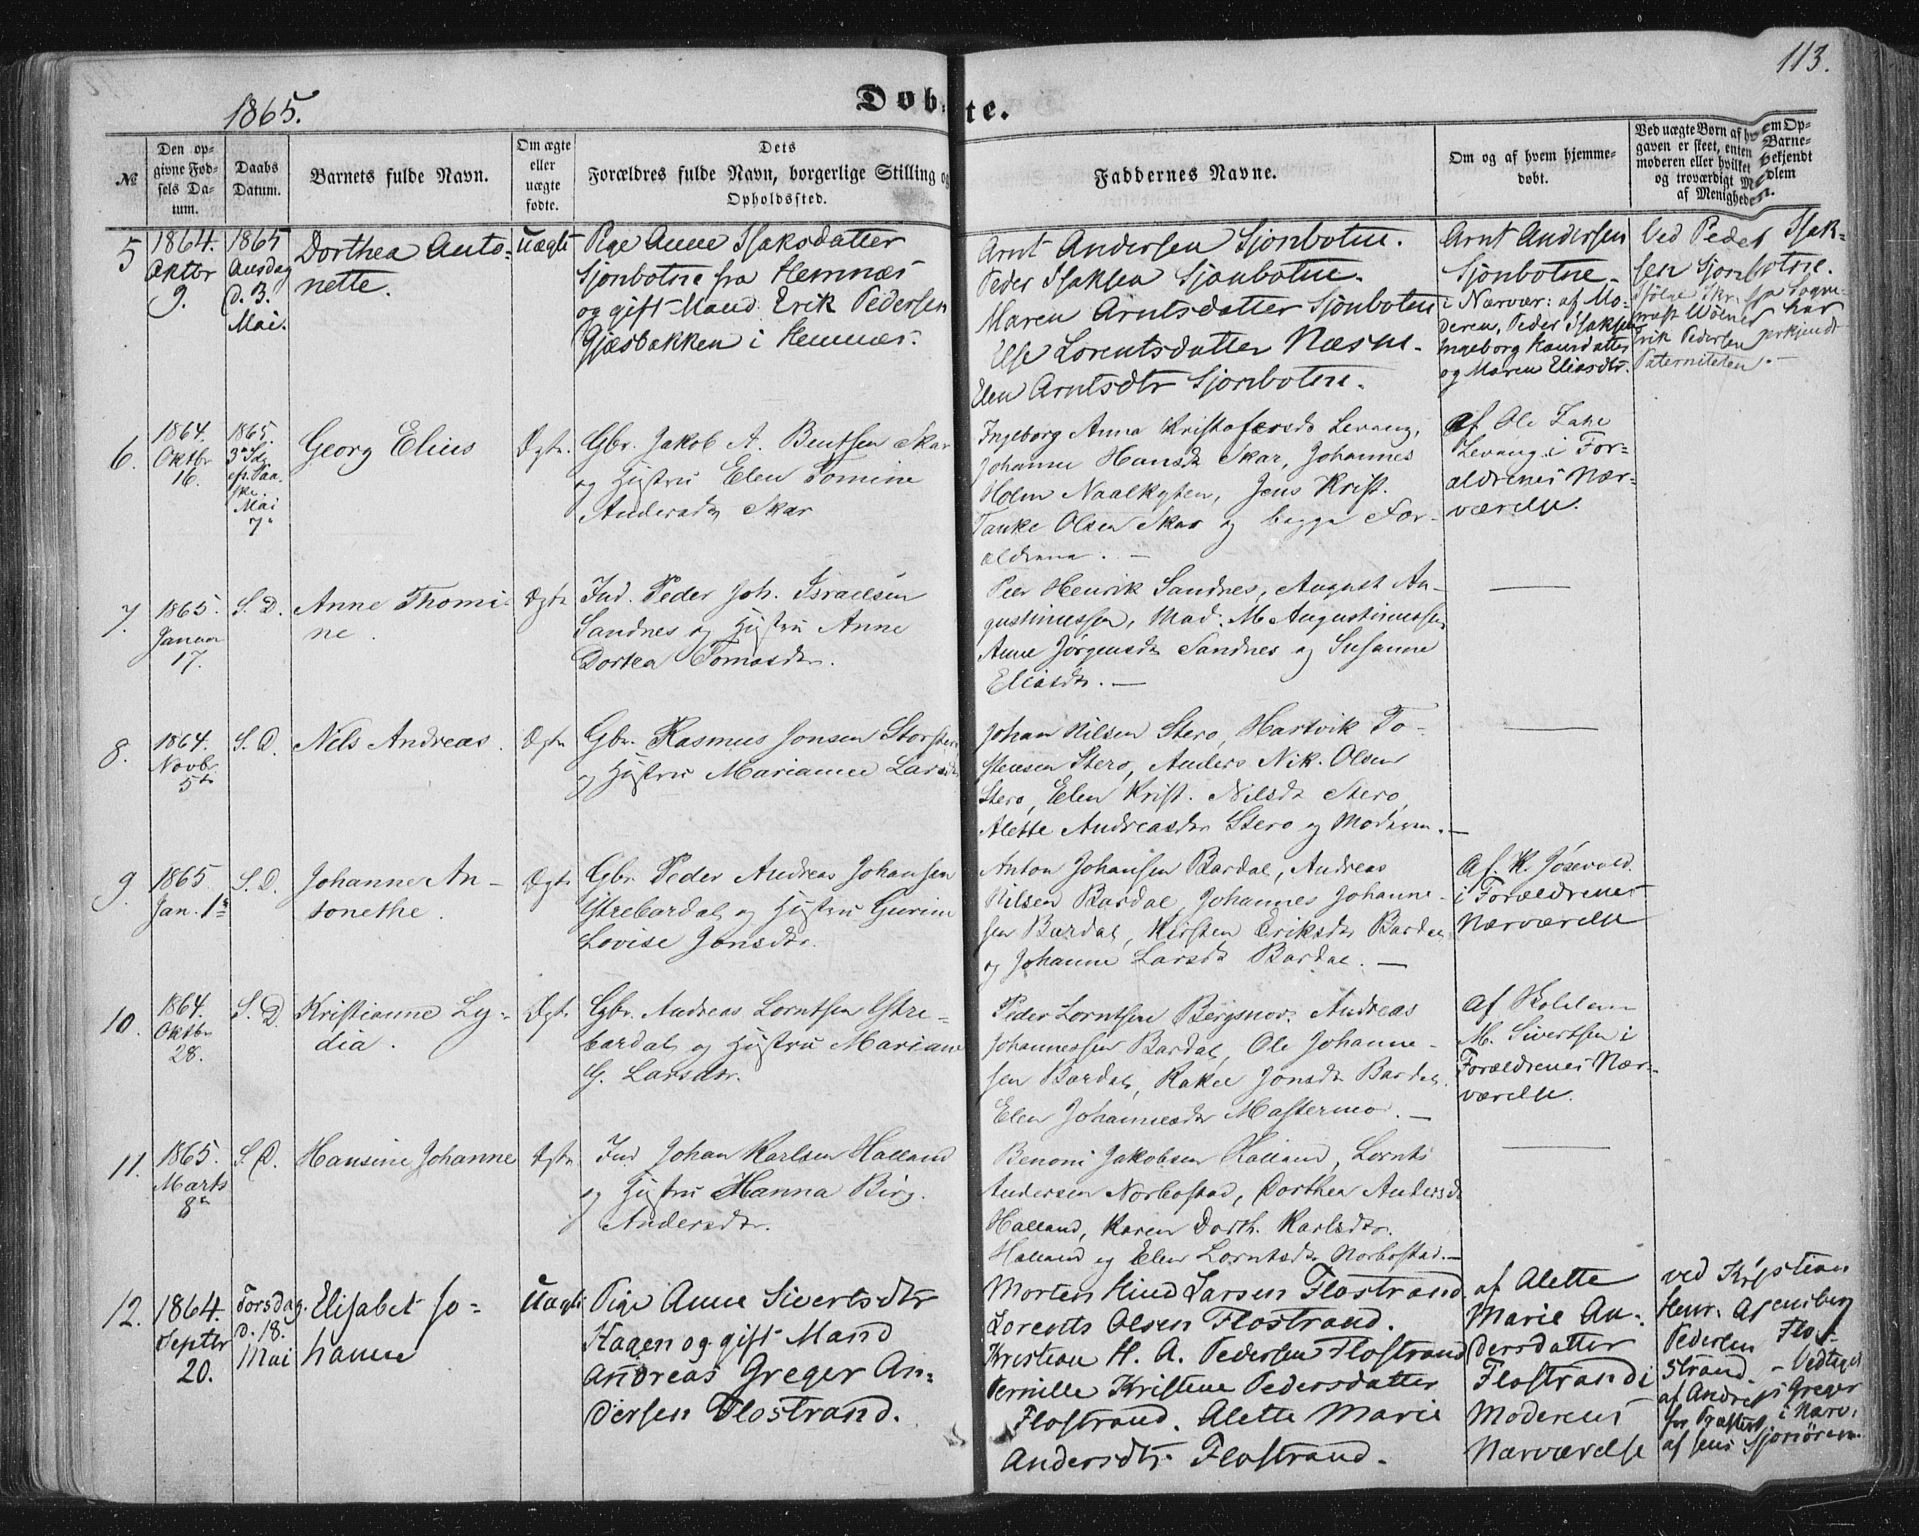 113.
1865.
Døbte.
№
Den op-
givne Fød-
sels Da-
tum.
Daabs
Datum.
Barnets fulde Navn.
Om ægte
eller
uægte
fødte.
Dets
Forældres fulde Navn, borgerlige Stilling og
Opholdssted.
Faddernes Navne.
Om og af hvem hjemme-
døbt.
Ved uægte Børn af hvem Op-
gaven er skeet, enten Barne-
moderen eller hvilket bekjendt
og troværdigt Medlem
af Menigheden.
5
1864.
Oktbr
9.
1865
Onsdag
d. 3.
Mai.
Dorthea Anto-
nette.
Uægte
Pige Anne Isaksdatter
Sjonbotne fra Hemnæs
og gift Mand Erik Pedersen
Gjæsbakken i Hemnæs.
Arnt Andersen Sjonbotne.
Peder Isaksen Sjonbotne.
Maren Arntsdatter Sjonbotne
Else Lorentsdatter Næsne.
Elen Arntsdtr Sjonbotne.
Arnt Andersen
Sjonbotne
i Nærvær: af Mo-
deren, Peder Isaksen
Ingeborg Hansdatter
og Maren Eliasdtr.
Ved Peder Isak-
sen Sjonbotne.
Ifølge Skr. fra Sogne-
præst Wolner har
Erik Pedersen erkjendt
Paterniteten.
6.
1864.
Oktbr
16.
1865.
3die Sdg
eft. Paa-
ske.
Mai
7de
Georg Elius
Ægte.
Gbr. Jakob A. Bentsen Skar
og Hustru Elen Tomine
Andersdtr Skar
Ingeborg Anna Kristofersdtr Levang,
Johanne Hansdtr Skar, Johannes
Holm Naalkysten, Jens Krist.
Tanke Olsen Skar og begge For-
ældrene.
af Ole Zahl
Levang i For-
ældrenes Nær-
værelse.
7.
1865.
Januar
17.
S. D.
Anne Thomi-
ne.
Ægte
Ind. Peder Joh. Israelsen
Sandnes og Hustru Anne
Dortea Tomasdtr.
Peer Henrik Sandnes, August Au-
gustinussen, Mad. M. Augustinussen
Anne Jørgensdtr Sandnes og Susanne
Eliasdtr.
8.
1864.
Novbr
5te
S. D.
Nils Andreas.
Ægte
Gbr. Rasmus Jonsen Storstero
og Hustru Marianne Larsdtr
Johan Nilsen Stero, Hartvik To-
stensen Stero, Anders Nik. Olsen
Stero, Elen Krist. Nilsdtr Stero,
Alette Andreasdtr Stero og Moderen.
9.
1865
Jan. 1ste
S. D.
Johanne An-
tonethe.
Ægte
Gbr. Peder Andreas Johansen
Ytrebardal og Hustru Gurine
Lovise Jonsdtr.
Anton Johansen Bardal, Andreas
Nilsen Bardal, Johannes Johanne-
sen Bardal, Kirsten Eriksdtr Bardal
og Johanne Larsdtr Bardal.
Af K. Jøsevold.
i Forældrenes
Nærværelse
10.
1864.
Oktbr
28.
S. D.
Kristianne Ly-
dia.
Ægte
Gbr. Andreas Lorntsen Ytre-
bardal og Hustru Marianne
G. Larsdtr.
Peder Lorntsen Bergsnov. Andreas
Johannessen Bardal, Ole Johanne-
sen Bardal, Rakel Jonsdtr Bardal.
Elen Johannesdtr Mastermo.
Af
M. Sivertsen i
Forældrenes Nær-
værelse.
11.
1865.
Marts
8de
S. D.
Hansine Johanne
Ægte
Ind Johan Karlsen Halland
og Hustru Hanna Birg.
Andersdtr.
Benoni Jakobsen Halland, Lornts
Andersen Norbostad, Dorthea Andersdtr
Halland, Karen Dorth. Karlsdtr.
Halland og Elen Lorntsdtr Norbostad.
12.
1864
Septbr
20.
Torsdag
d. 18.
Mai
Elisabet Jo-
hanne
Uægte
Pige Anne Sivertsdtr
Hagen og gift Mand
Andreas Greger An-
dersen Flostrand.
Morten Hind Larsen Flostrand
Lorents Olsen Flostrand.
Kristian H. A. Pedersen Flostrand
Pernille Kristene Pedersdatter
Flostrand. Alette Marie
Andersdtr Flostrand.
af Alette
Marie An-
dersdatter
Flostrand i
Moderens
Nærværelse
ved Kristian
Henr. Agensberg
Pedersen Flo-
strand. - Vedtaget
af Andreas Greger
for Præsten i Nærv:
af Jens Sjonøren